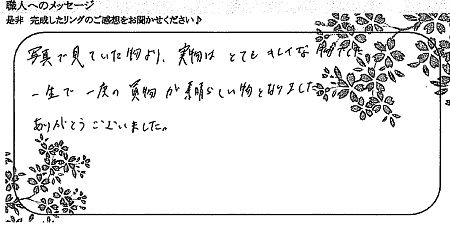 職人へのメッセージ
是非 完成したリングのご感想をお聞かせください♪
写真で見ていた物より、実物は とても キレイな 物でした
一生で 一度の 買物 が 素晴らしい物となりました
ありがとう ございました。